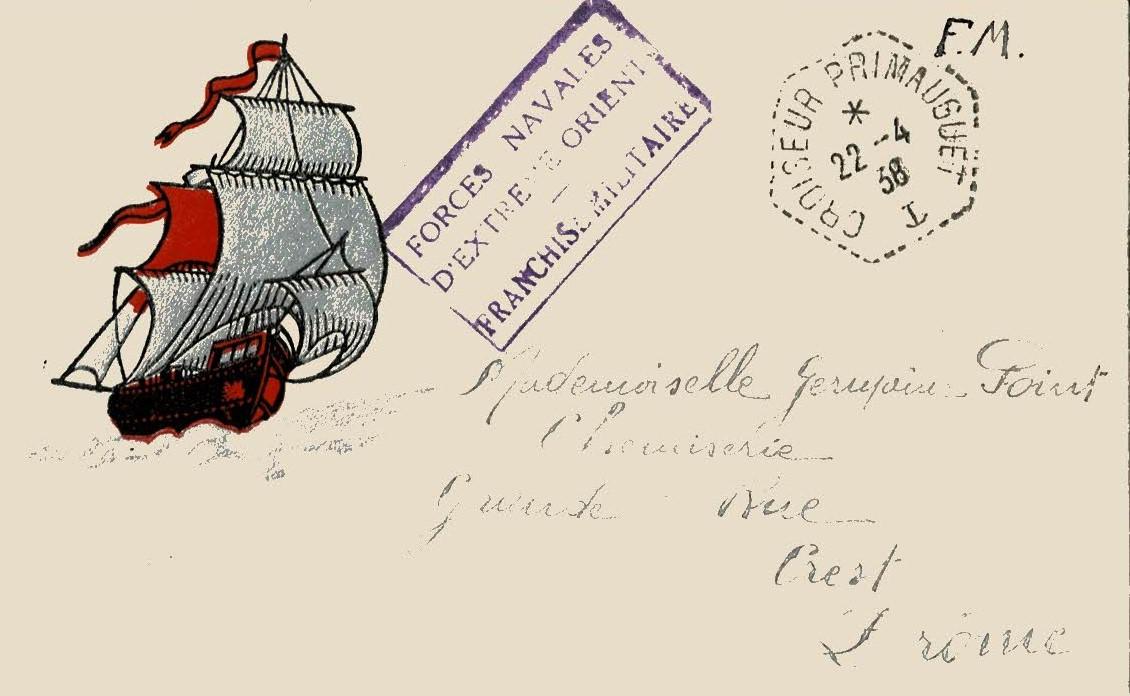 F.M.
CROISEUR PRIMAUGUET
*
22 -4
38
T
FORCES NAVALES
D'EXTREME ORIENT
FRANCHISE MILITAIRE
Mademoiselle Point
Chemiserie
Grande Rue
Crest
Drôme